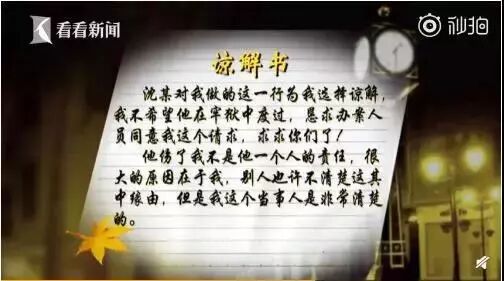 看看新闻
秒拍
谅解书
沈某对我做的这一行为我选择谅解，
我不希望他在牢狱中度过，恳求办案人
员同意我这个请求，求求你们了！
他伤了我不是他一个人的责任，很
大的原因在于我，别人也许不清楚这其
中缘由，但是我这个当事人是非常清楚
的。